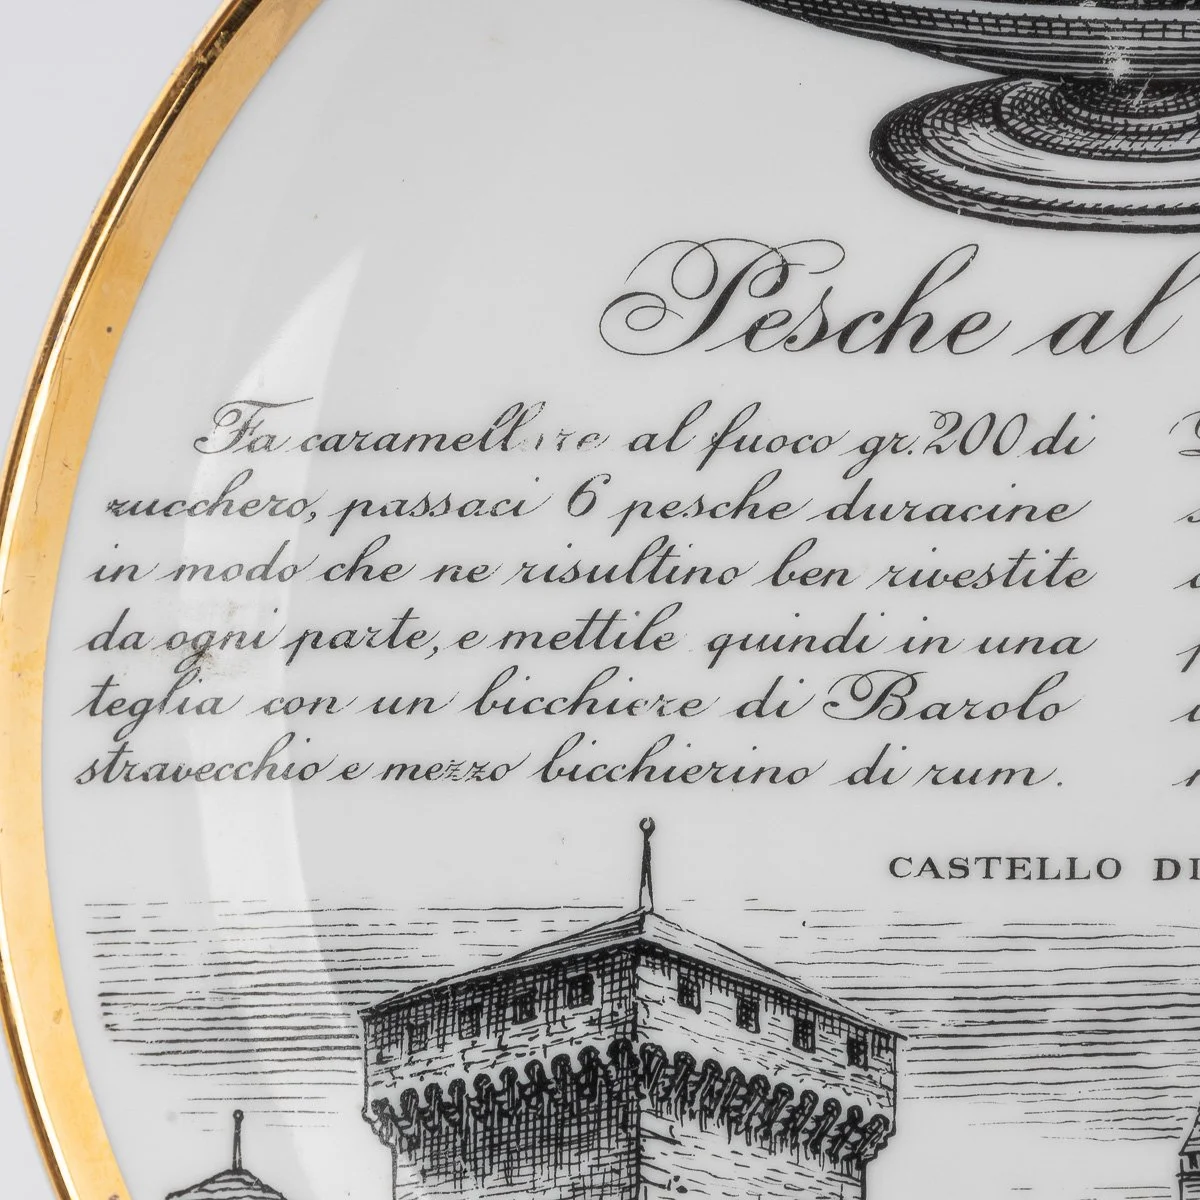 Pesche al
Fa caramellare al fuoco gr. 200 di
zucchero, passaci 6 pesche duracine
in modo che ne risultino ben rivestite
da ogni parte, e mettile quindi in una
teglia con un bicchiere di Barolo
stravecchio e mezzo bicchierino di rum.
CASTELLO DI